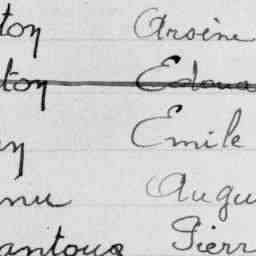 ton Arsène
ton Edoua
Emile
nu Augu
antous Pierr